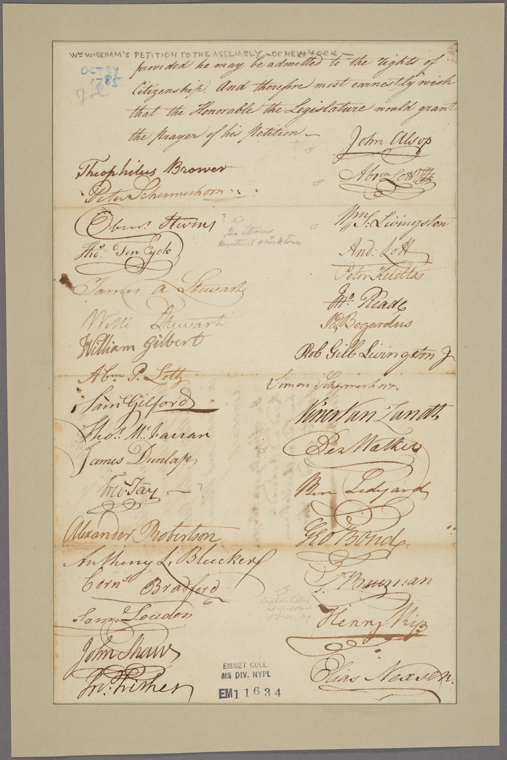 Wm WISEHAM'S PETITION TO THE ASSEMBLY - OF NEW YORK -
OCT 29
1785
provided he may be admitted to the rights of
Citizenship. And therefore most earnestly wish
that the Honorable the Legislature would grant
the prayer of his Petition —
John Alsop
Theophilus Brower
Peter Schermerhorn
Abm Lott
Ebenr. Stevens
Wm S. Livingston
Thos. Ten Eyck
And: Lott
James A Stewart
Peter Ketettas
Jno. Reade
Willi Stewart
Bogardus
William Gilbert
Rob Gill Livingston Jr
Abm P. Lott
Simon Schermerhorn
Saml Gilford
Viner Van Zandt
Thos. Mc Farran
Per Walker
James Dunlap
Wm Ledyard
Fre Jay
Geo Bond
Alexander Robertson
Anthony L. Bleecker
Corns Bradford
Henry Kip
Saml Loudon
John Shaw
Elias Nexsen
Fisher
EMMET COLL.
MS DIV. NYPL
EM11634